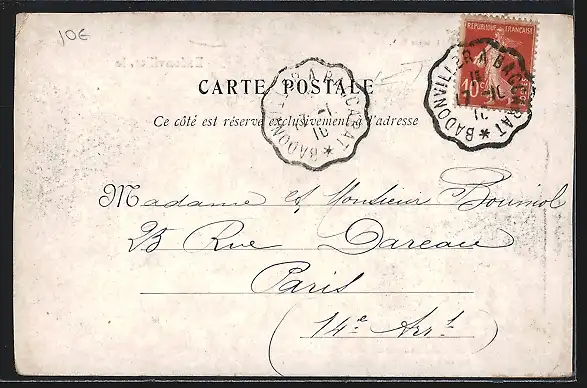 10€
REPUBLIQUE FRANÇAISE
10c
BADONVILLER A BACCARAT *
BADONVILLER A BACCARAT *
CARTE POSTALE
Ce côté est réservé exclusivement à l'adresse
Madame et Monsieur
25 Rue Dareau
Paris
(14e Arrt)